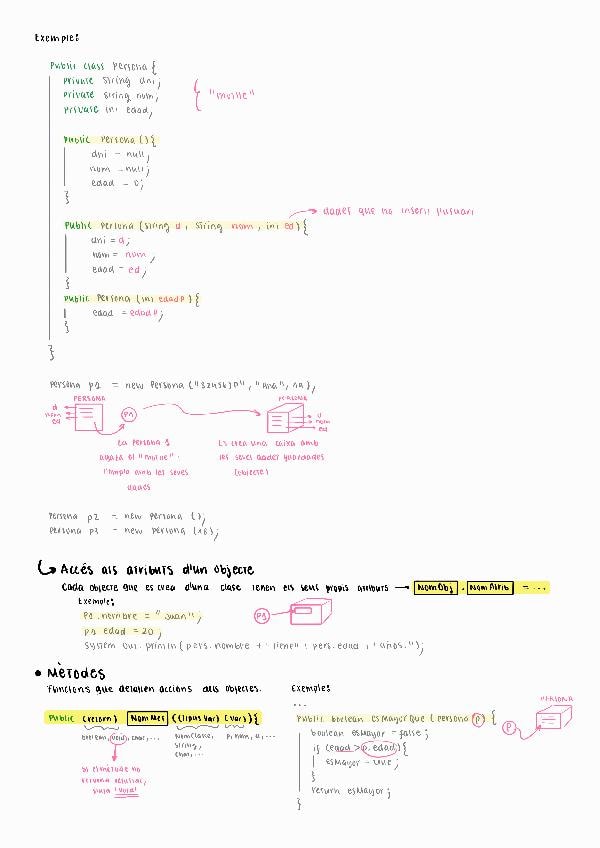 Exemple:
Public class Persona {
Private String dni;
Private String nom;
Private int edad;
"motlle"
Public Persona () {
dni = null;
nom = null;
edad = 0;
}
dades que ha inserit l'usuari
Public Persona (String d, String nom, int ed) {
dni = d;
nom = nom;
edad = ed;
}
Public Persona (int edadP) {
edad = edadP;
}
}
Persona p1 = new Persona (
, "Ana",
PERSONA
PERSONA
d
nom
ed
P1
d
nom
ed
La Persona 1
agafa el "motlle" i
l'omple amb les seves
dades
Es crea una caixa amb
les seves dades guardades
(objecte)
Persona p2 = new Persona ();
Persona p3 = new Persona (18);
Accés als atributs d'un objecte
Cada objecte que es crea d'una clase tenen els seus propis atributs → NomObj . NomAtrib = ...
Exemple:
P1.nombre = "Juan";
p1.edad = 20;
P1
System.out.println(pers.nombre + " tiene" + pers.edad + "años.");
• Mètodes
Funcions que detallen accions dels objectes.
Public (retorn) NomMet ((tipusVar) (var)) {
boolean, void, char, ...
NomClase,
String,
char,
...
p, nom, d, ...
Si el mètode no
retorna
seria "void"
Exemple:
...
Public boolean esMayorque (Persona p) {
boolean esMayor = false;
if (edad > p.edad) {
esMayor = true;
}
return esMayor;
}
PERSONA
P